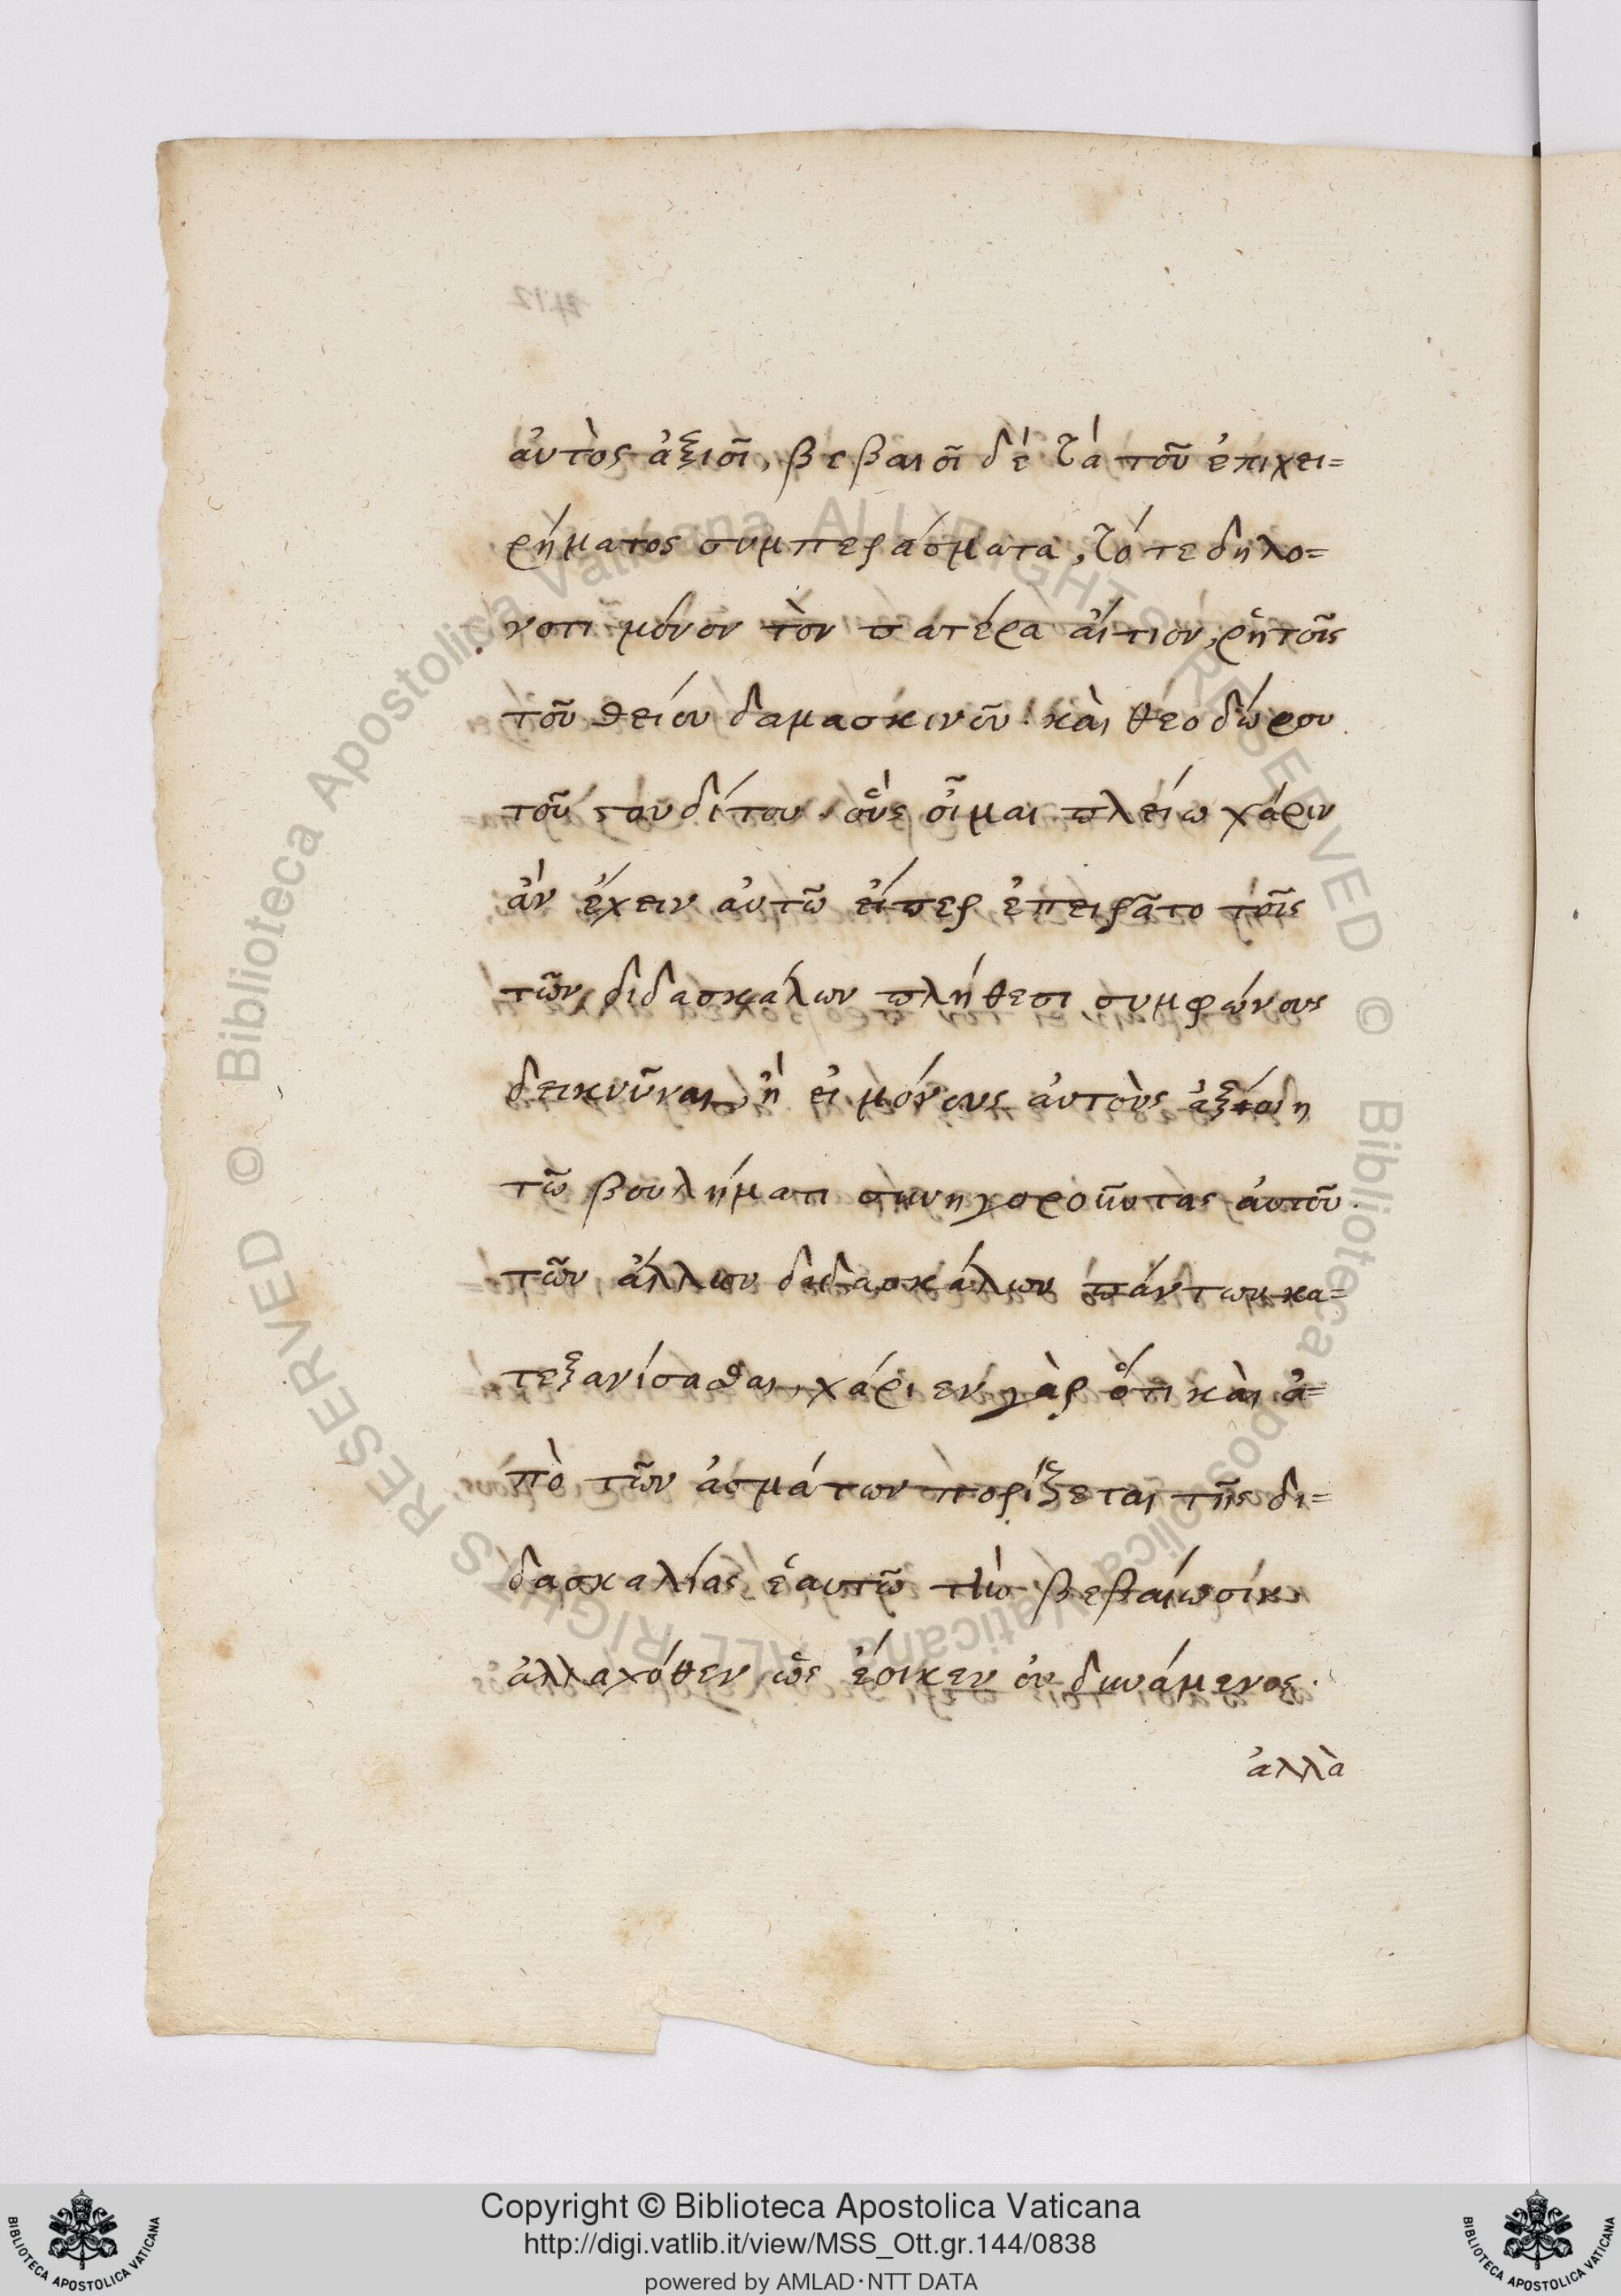 αὐτὸς ἀξιοῖ, βεβαιοῖ δὲ τὰ τοῦ ἐπιχει=
ρήματος συμπεράσματα, τό τε δηλο=
νοτι μόνον τὸν πατέρα αἴτιον, ῥητοῖς
τοῦ θείου δαμασκινοῦ. καὶ θεοδώρου
τοῦ στουδίτου. οὓς οἶμαι πλείω χάριν
ἂν ἔχειν αὐτῶ εἴπερ ἐπειρᾶτο τοῖς
τῶν διδασκάλων πλήθεσι συμφώνους
δεικνῦναι, ἢ εἰ μόνους αὐτοὺς ἀξιοίη
τῶ βουλήματι συνηγοροῦντας αὐτοῦ.
τῶν ἄλλων διδασκάλων πάντων κα=
τεξανίσασθαι, χάριεν γὰρ ὅτι καὶ ἀ=
πὸ τῶν ἀσμάτων πορίζεται τῆς δι=
δασκαλίας ἑαυτῶ τὴν βεβαίωσίν
ἀλλαχόθεν ὡς ἔοικεν οὐ δυνάμενος.
ἀλλὰ
Copyright © Biblioteca Apostolica Vaticana
http://digi.vatlib.it/view/MSS_Ott.gr.144/0838
powered by AMLAD·NTT DATA
BIBLIOTECA APOSTOLICA VATICANA
BIBLIOTECA APOSTOLICA VATICANA
© Biblioteca Apostolica Vaticana ALL RIGHTS RESERVED
© Biblioteca Apostolica Vaticana ALL RIGHTS RESERVED